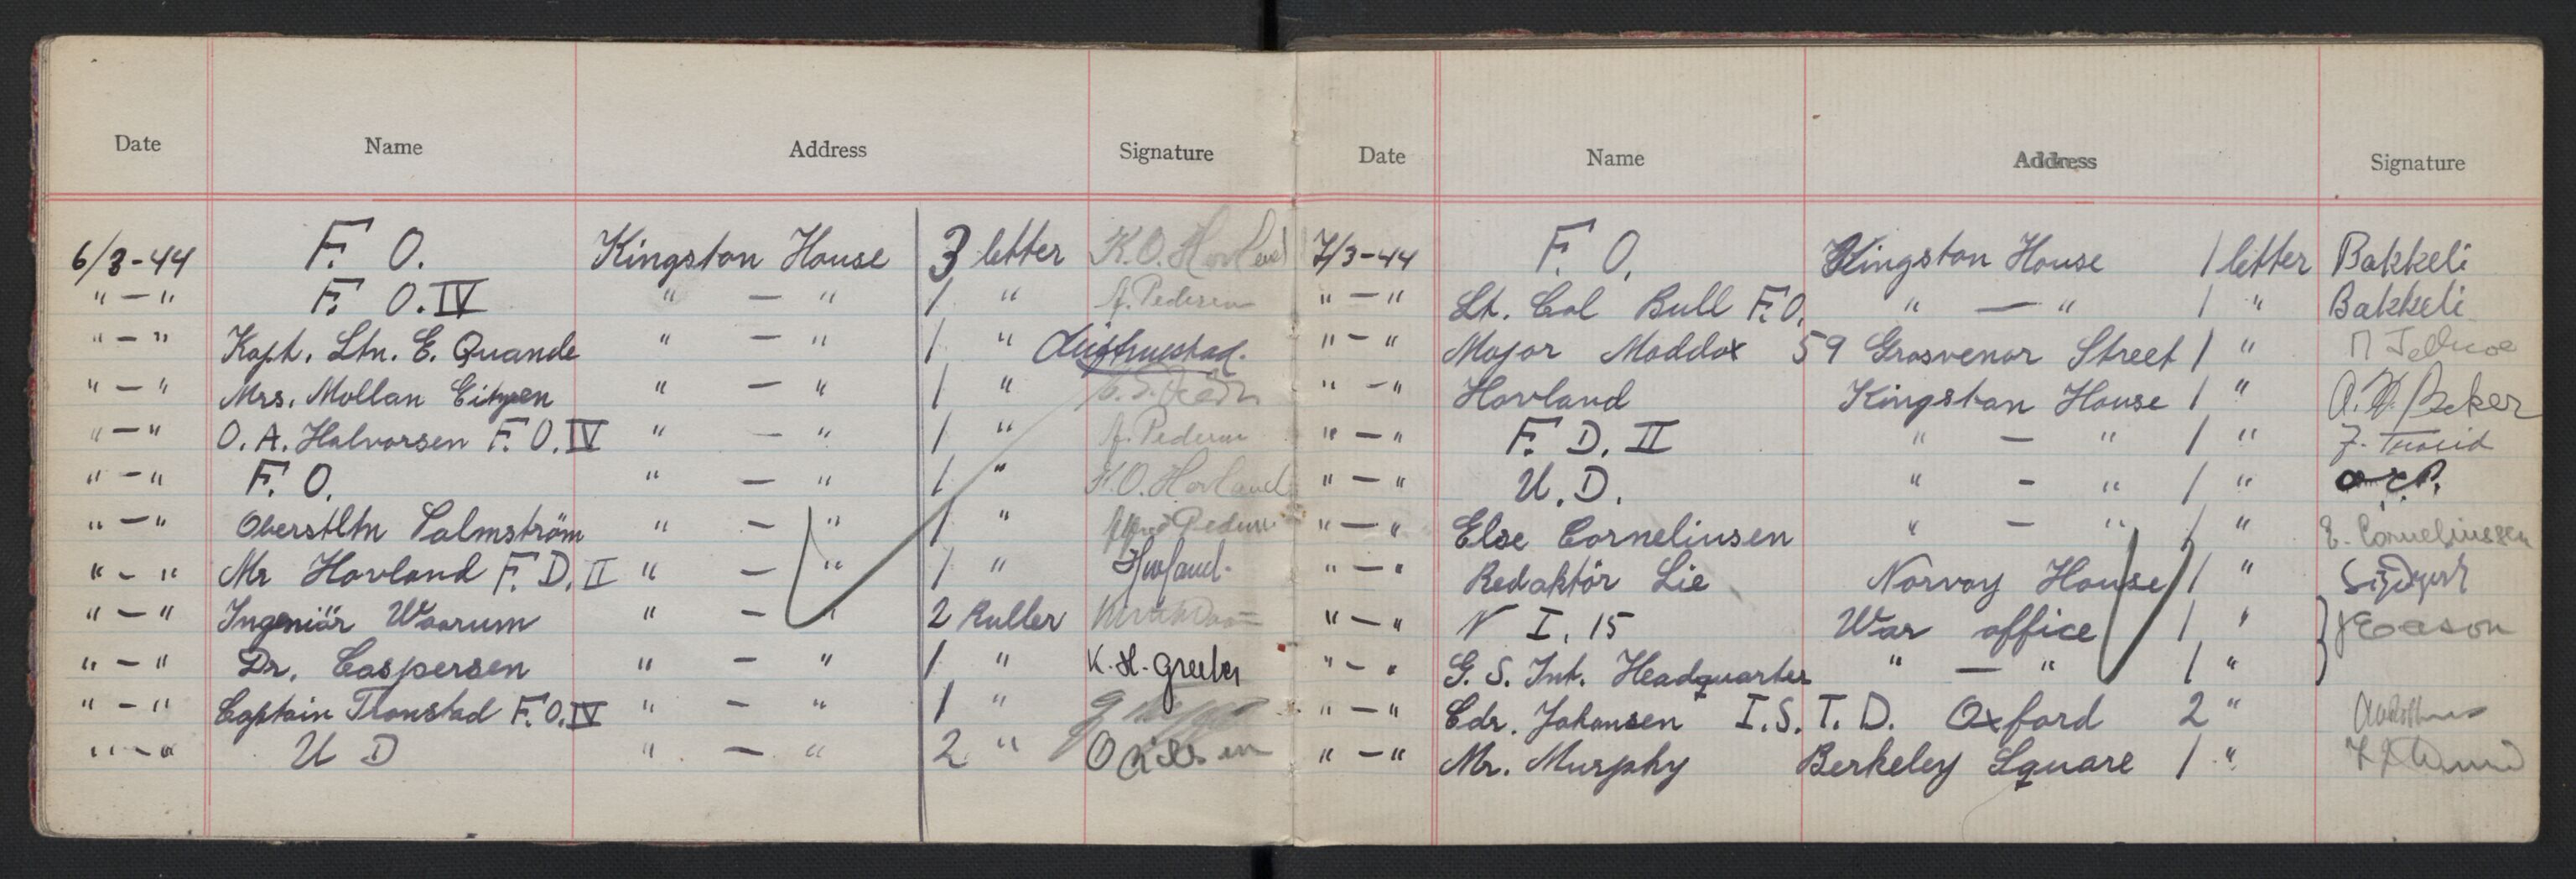 Date Name Address Signature
6/3-44 F. O. Kingston House 3 letter K.O. Hovland
" - " F. O. IV " - " 1 " A. Pedersen
" - " Kapt. Ltn. E. Quande " - " 1 "
" - " Mrs. Mollan Eitzen " - " 1 "
" - " O. A. Halvorsen F. O. IV " - " 1 " A. Pedersen
" - " F. O. " - " 1 " K.O. Hovland
" - " Oberstltn Palmström " - " 1 " Pedersen
" - " Mr Hovland F. D. II " - " 1 " Hovland.
" - " Ingeniör Waarum " - " 2 Ruller
" - " Dr. Caspersen " - " 1 " K. H. Greeker
" - " Captain Tronstad F. O. IV " - " 1 "
" - " U D " - " 2 " O Nilsen
Date Name Address Signature
7/3-44 F. O. Kingston House 1 letter Bakkeli
" - " Lt. Col Bull F.O. " - " 1 " Bakkeli
" - " Major Maddox 59 Grosvenor Street 1 "
" - " Hovland Kingston House 1 " Beker
" - " F. D. II " - " 1 "
" - " U. D. " - " 1 "
" - " Else Corneliusen " - " 1 " E. Corneliussen
" - " Redaktör Lie Norway House 1 "
" - " N I. 15 War office 1 " Eason
" - " G. S. Int. Headquarter " - " 1 "
" - " Cdr. Johansen I.S.T.D. Oxford 2 "
" - " Mr. Murphy Berkeley Square 1 "